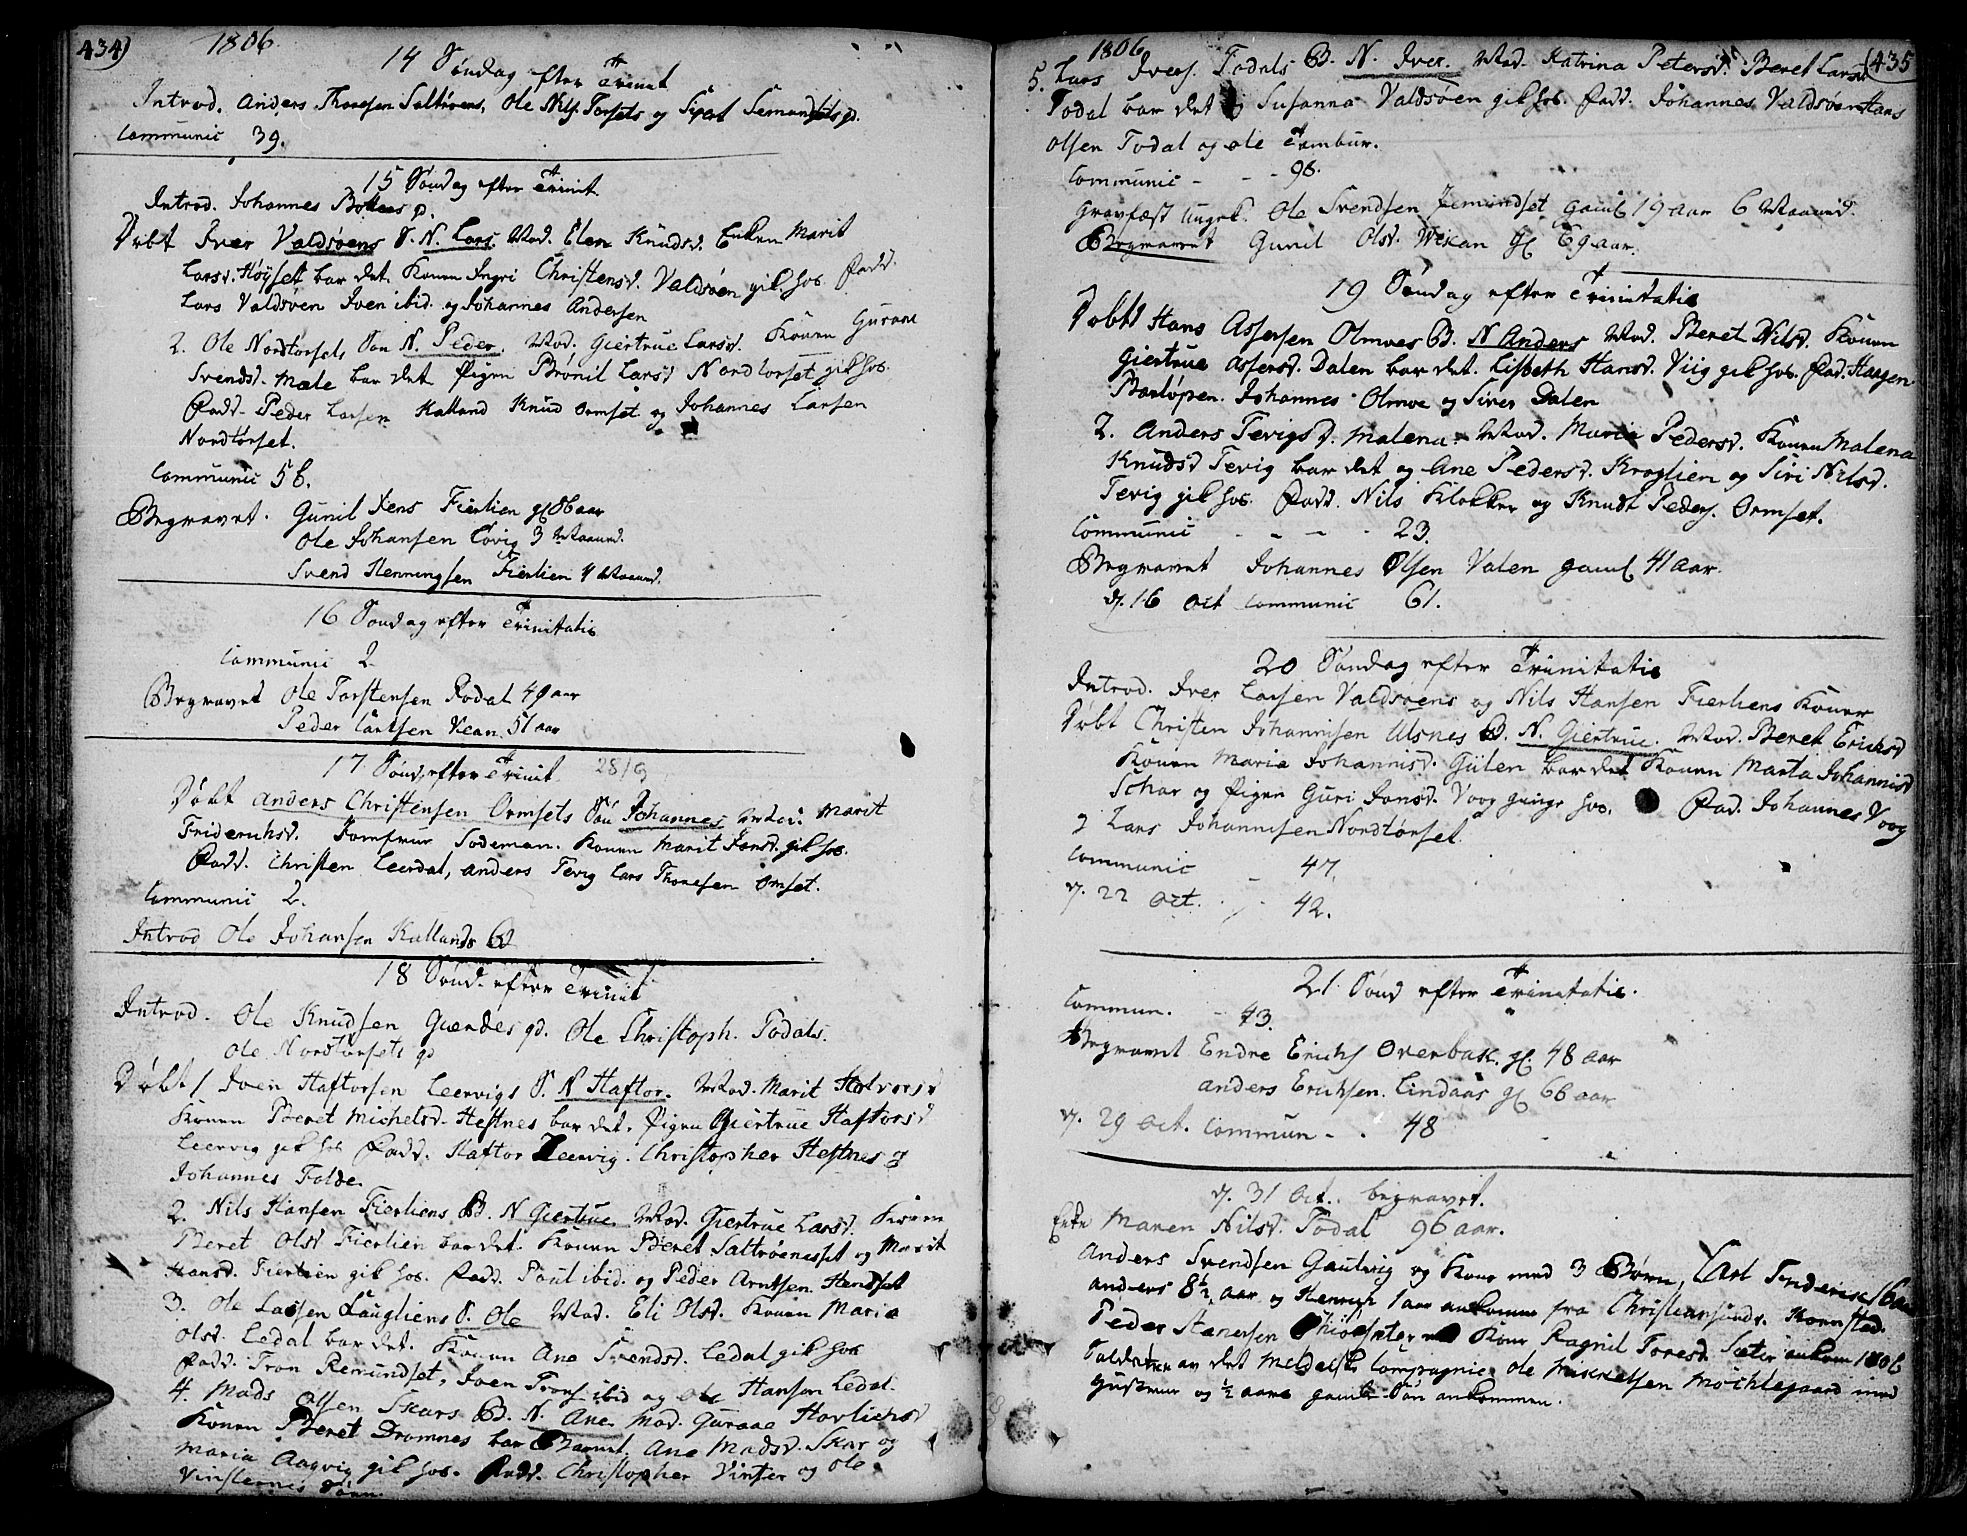 434) 1806.
14 Søndag efter Trinit
Introd. Anders Thoresen Saltrøens, Ole Nils. Torsets og Siert
Communic 39.
15 Søndag efter Trinit.
Introd. Johannes
Døbt Iver Valdsøens S. N. Lars. Mod. Elen Knudsd. Enken Marit
Larsd. Høyset bar det. Konen Ingri Christensd. Valdsøen gik hos. Fadd.
Lars Valdsøen Iven ibid. og Johannes Andersen
2. Ole Nordtorsets Søn N. Peder. Mod. Giertrue Larsd. Konen Gurane
Svendsd. Mæle bar det Pigen Brønil Larsd Nordtorset gik hos.
Fadd. Peder Larsen Kalland Knud Ormset og Johannes Larsen
Nordtørset.
Communic 56.
Begravet. Gunil Jens Fierlien gl 86 aar
Ole Johansen Tøvig 3 Maaned.
Svend Henningsen Fierlien 4 Maaned.
16 Søndag efter Trinitatis
Communic 2.
Begravet Ole Torstensen Rodal 49 aar
Peder Larsen 51 aar
17 Sønd. efter Trinit. 28/9
Døbt Anders Christensen Ormsets Søn Johannes Moder Marit
Friderichsd. Jomfrue Sodeman. Konen Marit Jonsd. gik hos.
Fadd. Christen Leerdal, Anders Tevig Lars Thoresen Omset.
Communic 2.
Introd Ole Johansen Kallands
18 Sønd. efter Trinit
Introd. Ole Knudsen Giendes qd. Ole Christoph. Todals.
Ole Nordtorsets qd
Døbt 1 Iven Haftorsen Leervigs S. N Haftor. Mod. Marit Halvorsd
Konen Beret Michelsd. Hestnes bar det. Pigen Giertrue Haftorsd
Leervig gik hos Fadd. Haftor Leervig. Christopher Hestnes og
Johannes Folde.
2. Nils Hansen Fierliens B. N Giertrue Mod. Giertrue Larsd. Konen
Beret Olsd Fierlien bar det. Konen Beret Saltrøenesset og Marit
Hansd. Fierlien gik hos. Fadd. Poul ibid. og Peder Arntsen Hendset
3. Ole Larsen Laugliens S. Ole Mod. Eli Olsd. Konen Maria
Olsd. Ledal bar det. Konen Ane Svendsd. Ledal gik hos
Fadd. Tron Remundset, Iven Trons. ibid og Ole Hanson Ledal.
4. Mads Olsen Skars B. N. Ane. Mod. Guraae
Konen Beret Dromnes bar Barnet. Ane Madsd. Skar og
Maria Aagvig gik hos. Fadd. Christopher Vinter og Ole
1806 (435
5. Lars Ivers. Todals B. N. Iver. Mod. Katrina Petersd. Beret Larsd
Todal bar det og Susanna Valdsøen gik hos. Fadd. Johannes Valdsøen Hans
Olsen Todal og Ole Tambur.
Communic - - - 96.
Gravfæst Ungek. Ole Svendsen Remundset gaml 19 aar 6 Maaned.
Begravet Gunil Olsd. Wekan gl 69 aar.
19 Søndag efter Trinitatis
Døbt Hans Assersen Olmoes B. N Anders Mod. Beret Nilsd. Konen
Giertrue Assersd. Dalen bar det. Lisbeth Hansd. Viig gik hos. Fad. Haagen
Johannes Olmoe og Siver Dalen
2. Anders Tevigs d. Malena. Mod. Maria Pedersd. Konen Malena
Knudsd Tevig bar det og Ane Pedersd. Kroglien og Siri Nilsd.
Tevig gik hos. Fadd. Nils Klokker og Knudt Peders. Ormset.
Communic - - - - 23.
Begravet Johannes Olsen Valen gaml 41 aar.
d. 16 Oct Communic 61.
20 Søndag efter Trinitatis
Introd. Iver Larsen Valdsøens og Nils Hansen Fierliens Koner
Døbt Christen Johannisen Ulsnes B. N. Giertrue. Mod. Beret Erichsd
Konen Maria Johannisd. Gülen bar det Konen Marta Johannisd
Schar og Pigen Guri Jonsd. Voog ginge hos. Fad. Johannes Voog
2 Lars Johannisen Nordtørset.
Communic - 47.
d. 22 Oct. - 42.
21. Sønd efter Trinitatis.
Commun. - 43.
Begravet Endre Erichs Overbak. gl. 48 aar
Anders Erichsen Lindaas gl 66 aar
d. 29 Oct. Commun - . 48
d. 31 Oct. begravet.
Enke Maren Nilsd. Todal 96 aar.
Anders Svendsen Gautvig og Kone med 3 Børn, Carl Frederik 16 aar
Anders 8½ aar og Henrich 1 aar ankomne fra Christiansunds
Peder Stenersen og Kone Ragnil Toresd. Sæter ankom 1806
Soldater av det Meldalske Compagnie. Ole Mikkelsen Mochlegaard med
Hustrue og ½ aars gaml Søn ankommen.